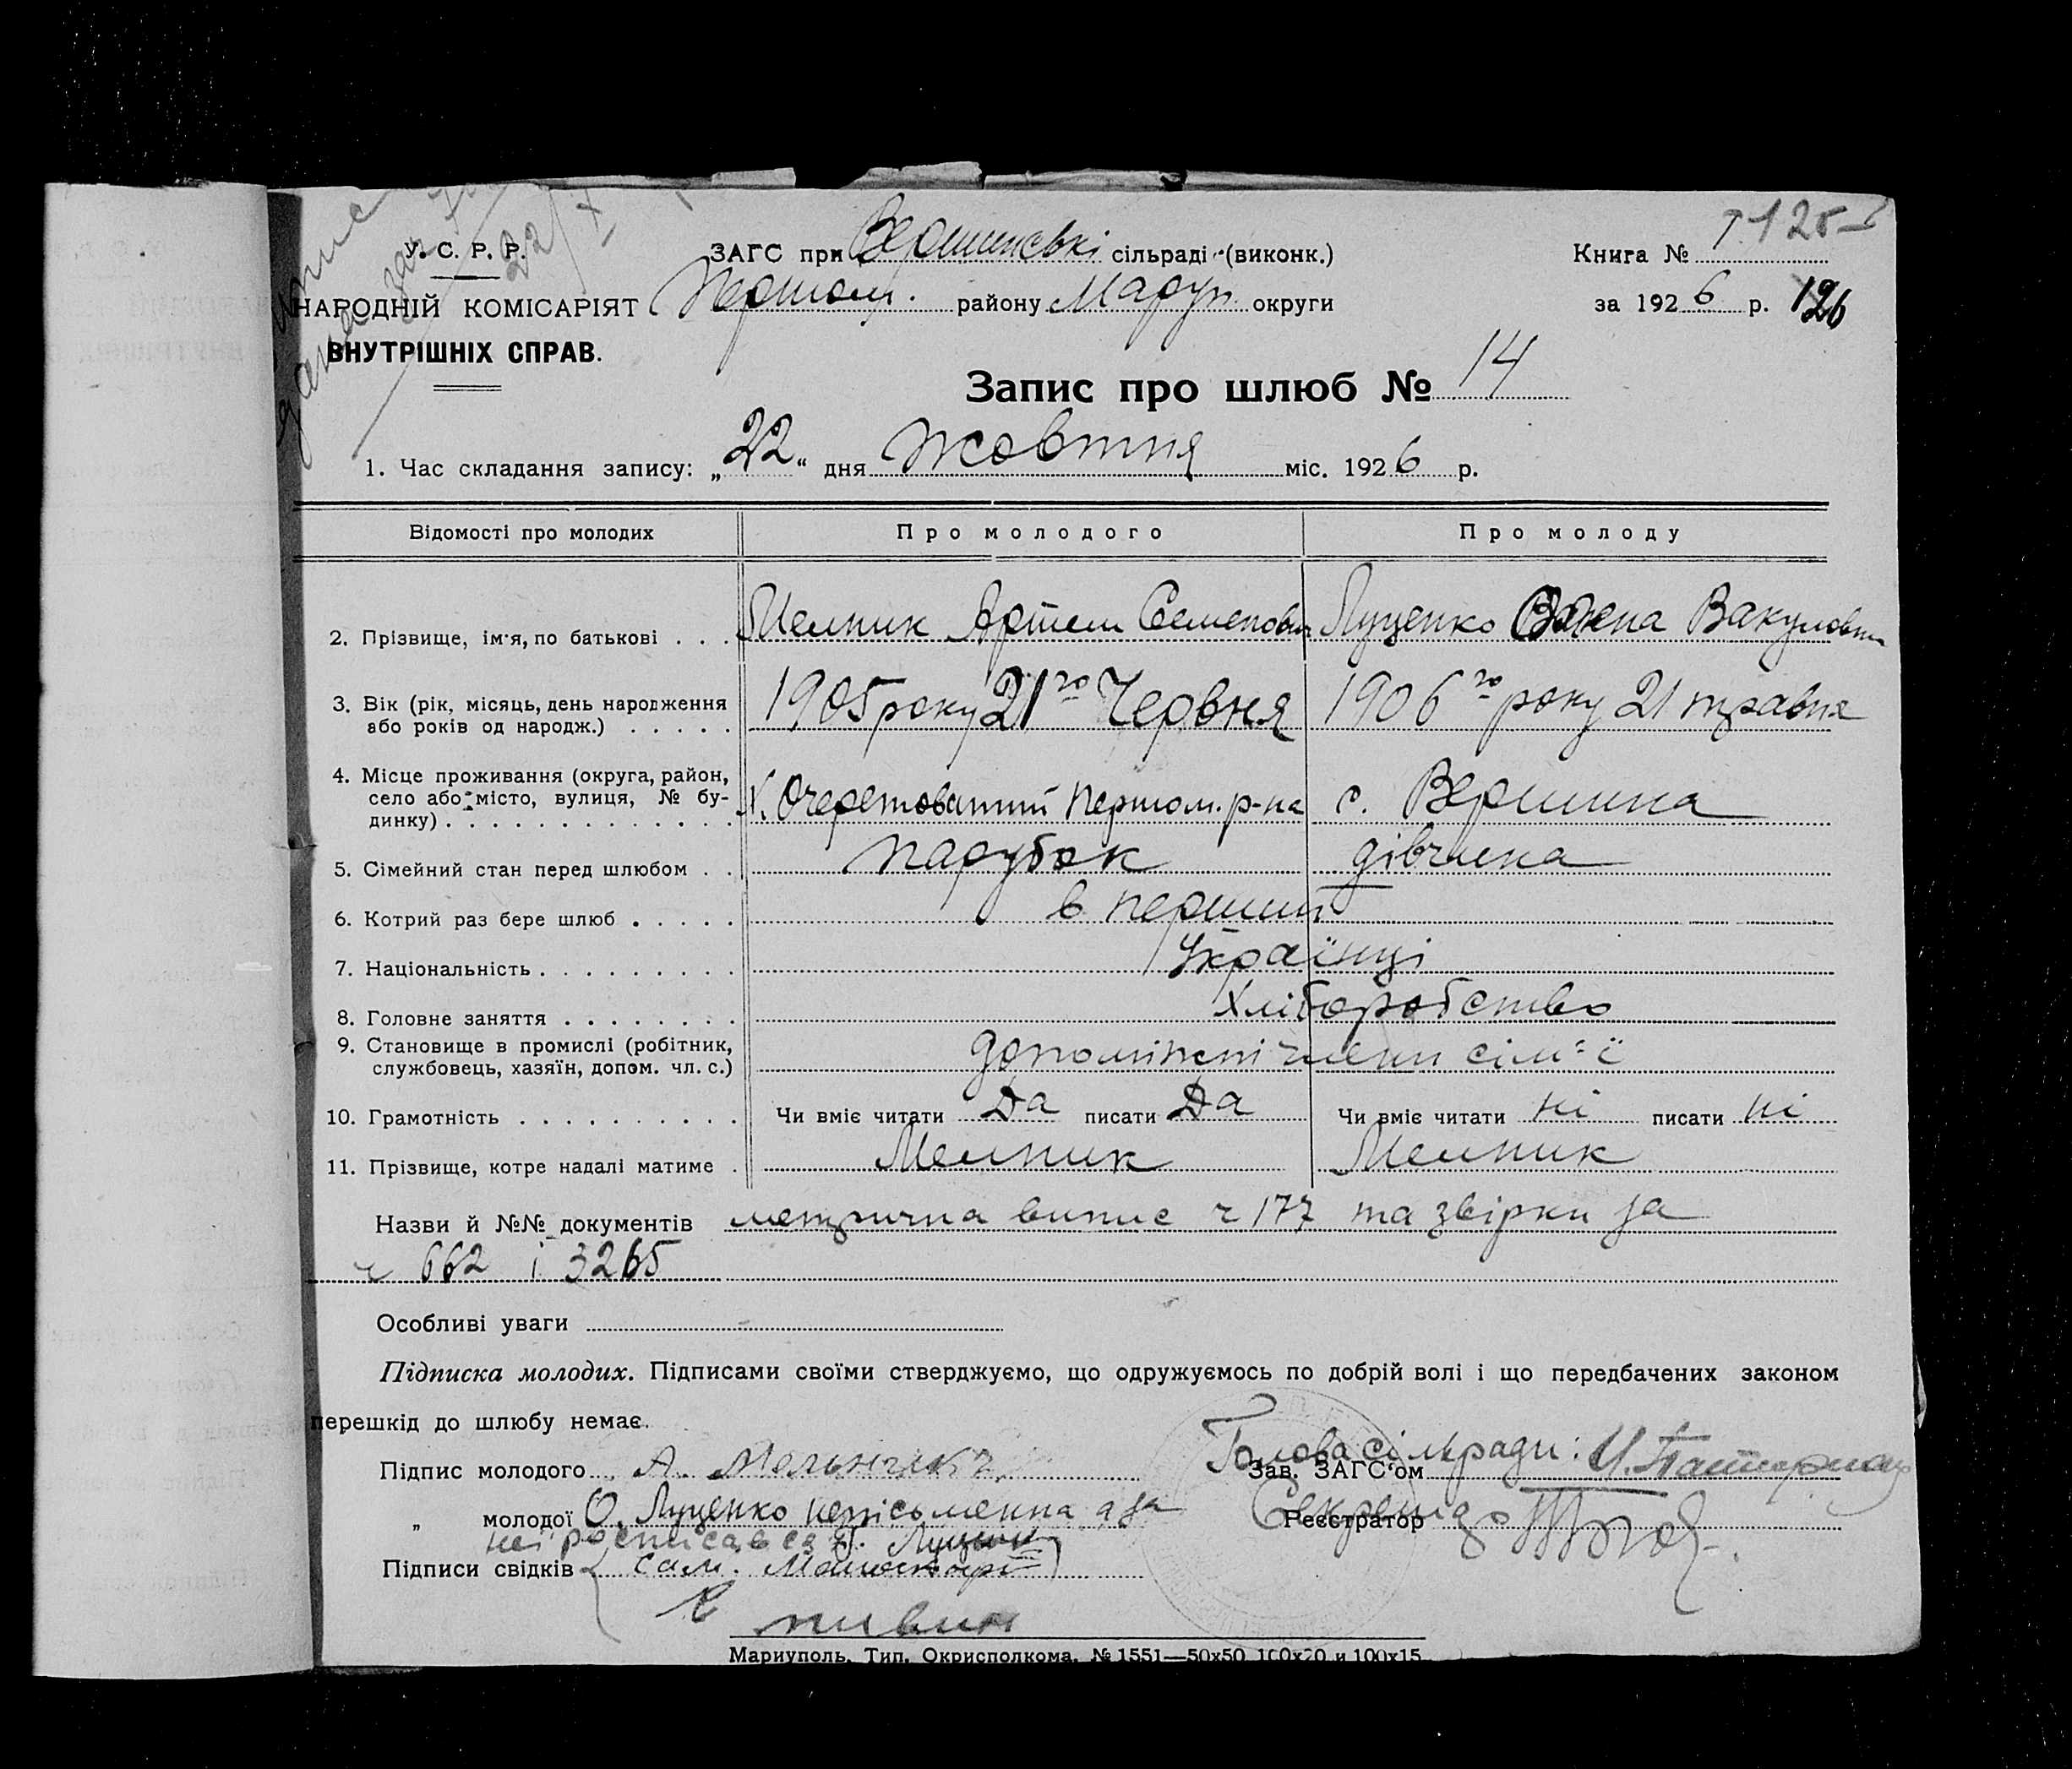 У. С. Р. Р.
НАРОДНІЙ КОМІСАРІЯТ
ВНУТРІШНІХ СПРАВ.
ЗАГС при Вершинські сільраді (виконк.)
Першом. району Маруп. округи
Книга №
за 1926 р. 126
Запис про шлюб № 14
1. Час складання запису: „22“ дня жовтня міс. 1926 р.
Відомості про молодих Про молодого Про молоду
2. Прізвище, ім'я, по батькові . . . Мелник Артем Семенович Луценко Вакуловна
3. Вік (рік, місяць, день народження 1905 року 21го Червня 1906го року 21 травня
або років од народж.) . . . . .
4. Місце проживання (округа, район,
село або місто, вулиця, № бу- х. Очеретоватий Першом. р-на с. Вершина
динку) . . . . . . . . . . . . .
5. Сімейний стан перед шлюбом . . парубок дівчина
6. Котрий раз бере шлюб . . . . . в перший
7. Національність . . . . . . . . . Українці
8. Головне заняття . . . . . . . . Хліборобство
9. Становище в промислі (робітник,
службовець, хазяїн, допом. чл. с.) допоміжні члени сім'ї
10. Грамотність . . . . . . . . . . Чи вміє читати Да писати Да Чи вміє читати ні писати ні
11. Прізвище, котре надалі матиме . Мелник Мелник
Назви й №№ документів метрична випис ч 177 та звірки за
ч 662 і 3265
Особливі уваги
Підписка молодих. Підписами своїми стверджуємо, що одружуємось по добрій волі і що передбачених законом
перешкід до шлюбу немає.
Голова сільради:
Підпис молодого А. Зав. ЗАГС'ом
„ молодої О. Луценко неписьменна а за Реєстратор
неї росписався
Підписи свідків
Мариуполь. Тип. Окрисполкома. № 1551—50х50 100х20 и 100х15